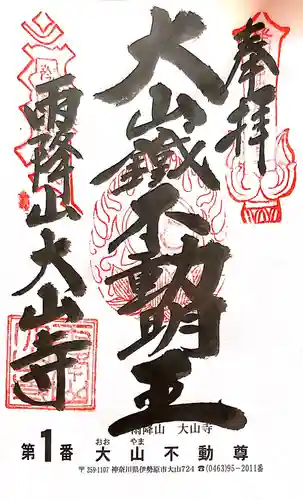 奉拝
大山鐵不動明王
雨降山大山寺
雨降山 大山寺
おお やま
第1番 大山不動尊
〒259-1107 神奈川県伊勢原市大山724 ☎(0463)95-2011番